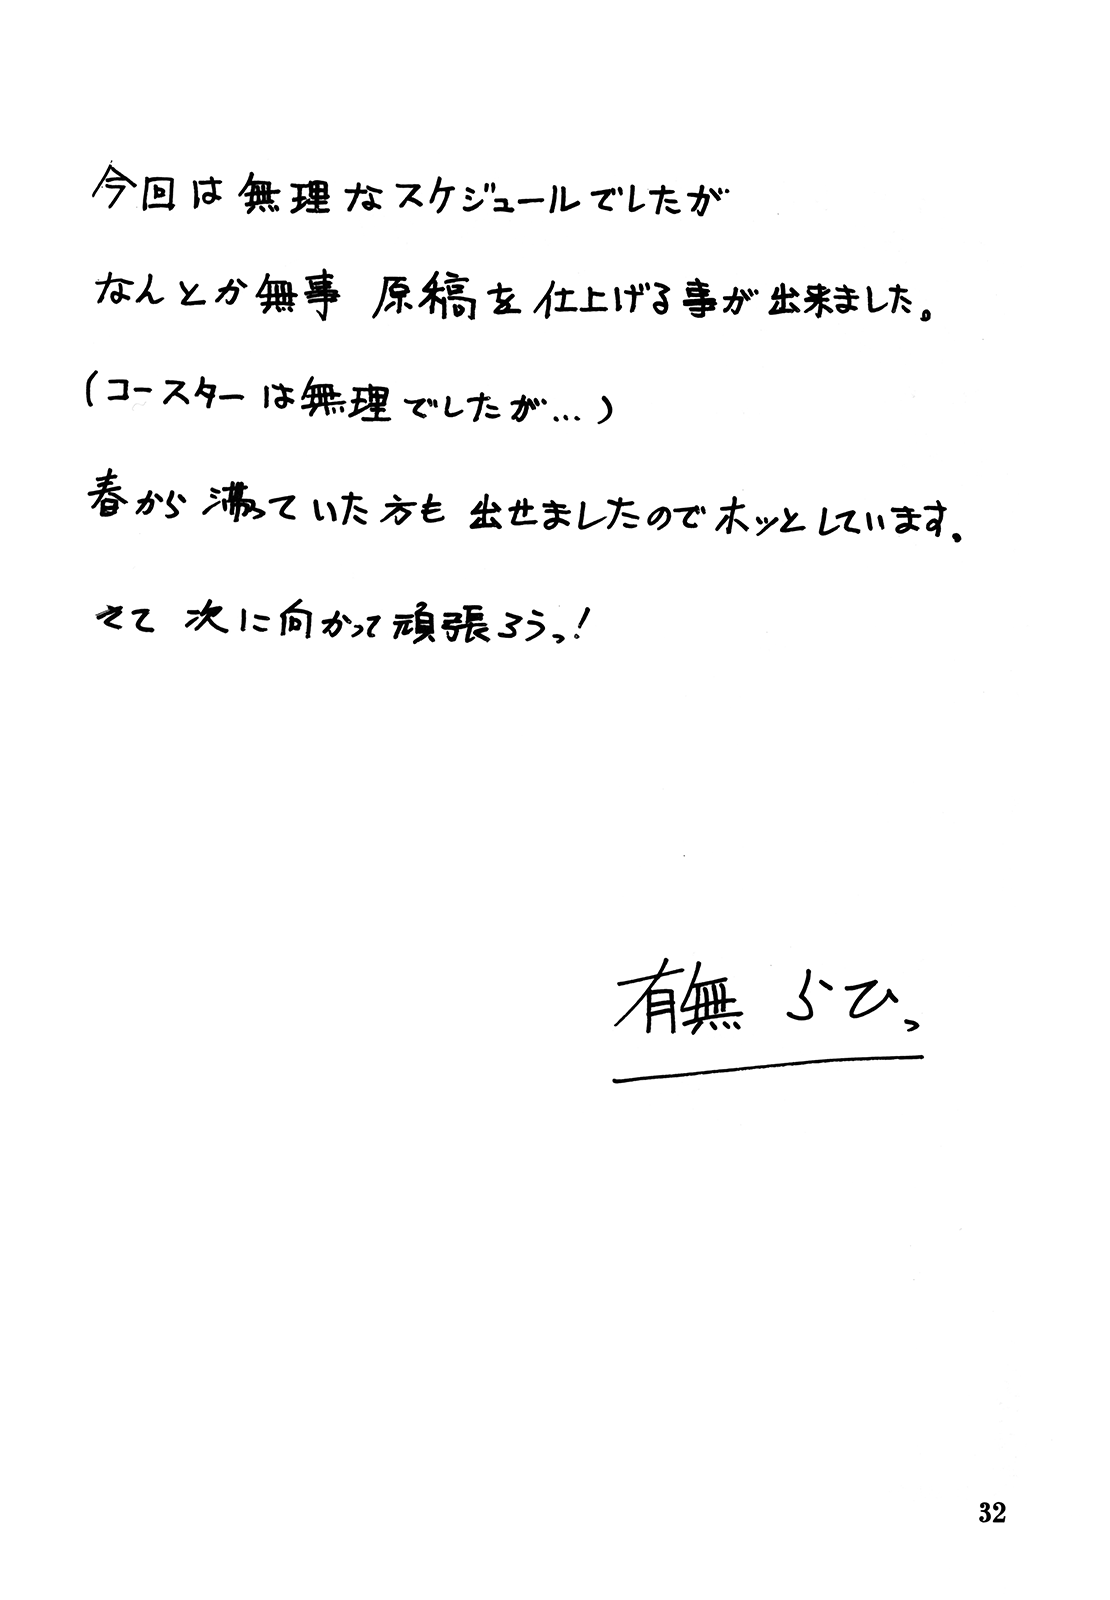 今回は無理なスケジュールでしたが
なんとか無事 原稿を仕上げる事が出来ました。
(コースターは無理でしたが…)
春から滞っていた方も 出せましたのでホッとしています。
さて 次に向かって頑張ろうっ!
有無 らひっ
32